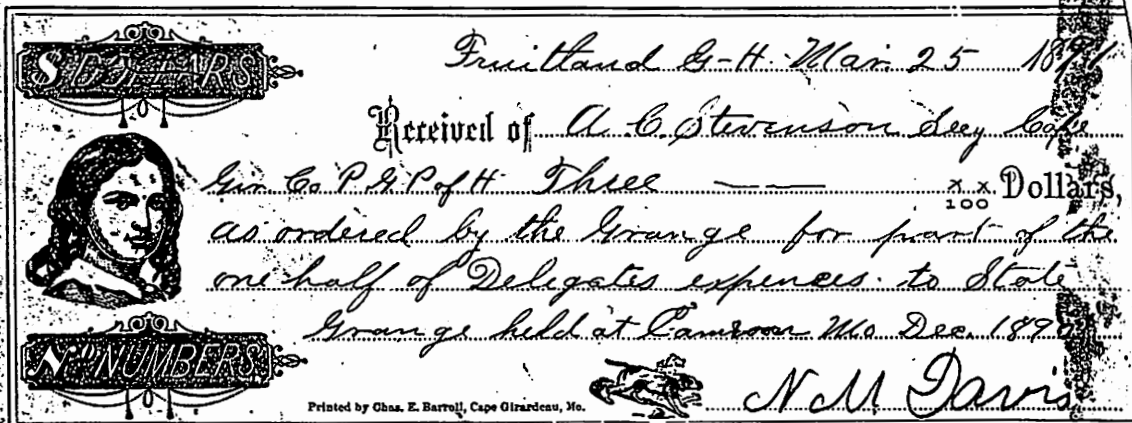 $ DOLLARS
Fruitland G-H. Mar. 25 1891
Received of A. C. Stevenson Secy Cape
Gir. Co P. G. P of H Three —— x x/100 Dollars,
as ordered by the Grange for part of the
one half of Delegates expences to State
Grange held at Cameron Mo. Dec. 189
No NUMBERS
Printed by Chas. E. Barroll, Cape Girardeau, Mo.
N M Davis